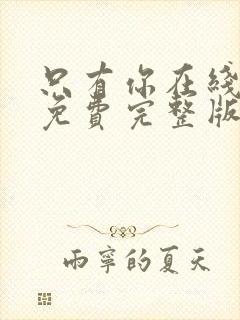 只有你在线
免费完整版
雨宁的夏天